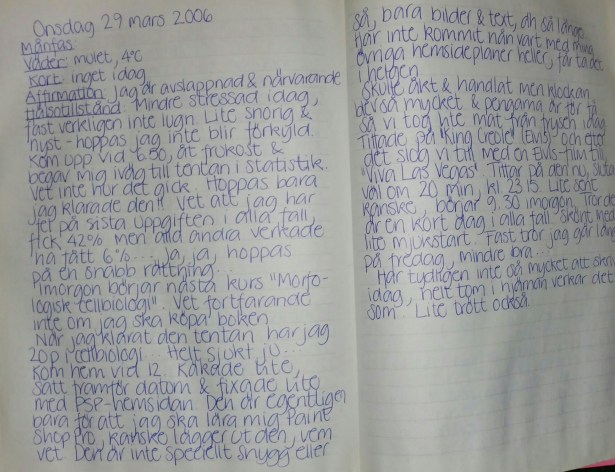 Onsdag 29 mars 2006
Månfas:
Väder: mulet, 4°C
Kort: inget idag
Affirmation: Jag är avslappnad & närvarande
Hälsotillstånd: Mindre stressad idag,
fast verkligen inte lugn. Lite snorig &
nyst - hoppas jag inte blir förkyld.
Kom upp vid 6.50, åt frukost &
begav mig iväg till tentan i statistik.
Vet inte hur det gick. Hoppas bara
jag klarade den!! Vet att jag har
fel på sista uppgiften i alla fall,
fick 42% men alla andra verkade
ha fått 6%... Ja, ja, hoppas
på en snabb rättning.
Imorgon börjar nästa kurs "Morfo-
logisk cellbiologi". Vet fortfarande
inte om jag ska köpa boken.
När jag klarat den tentan har jag
20p i cellbiologi... Helt sjukt ju...
Kom hem vid 12. Käkade lite,
satt framför datorn & fixade lite
med PSP-hemsidan. Den är egentligen
bara för att jag ska lära mig Paint
Shop Pro, kanske lägger ut den, vem
vet. Den är inte speciellt snygg eller
så, bara bilder & text, dh så länge.
Har inte kommit nån vart med mina
övriga hemsideplaner heller, får ta det
i helgen.
Skulle åkt & handlat men klockan
blev så mycket & pengarna är för få
så vi tog lite mat från frysen idag.
Tittade på "King Creole" (Elvis) och efter
det slog vi till med en Elvis-film till
"Viva Las Vegas". Tittar på den nu, slutar
väl om 20 min, kl 23.15. Lite sent
kanske, börjar 9.30 imorgon. Tror det
är en kort dag i alla fall. Skönt med
lite mjukstart. Fast tror jag går länge
på fredag, mindre bra...
Har tydligen inte så mycket att skriva
idag, helt tom i hjärnan verkar det
som. Lite trött också.